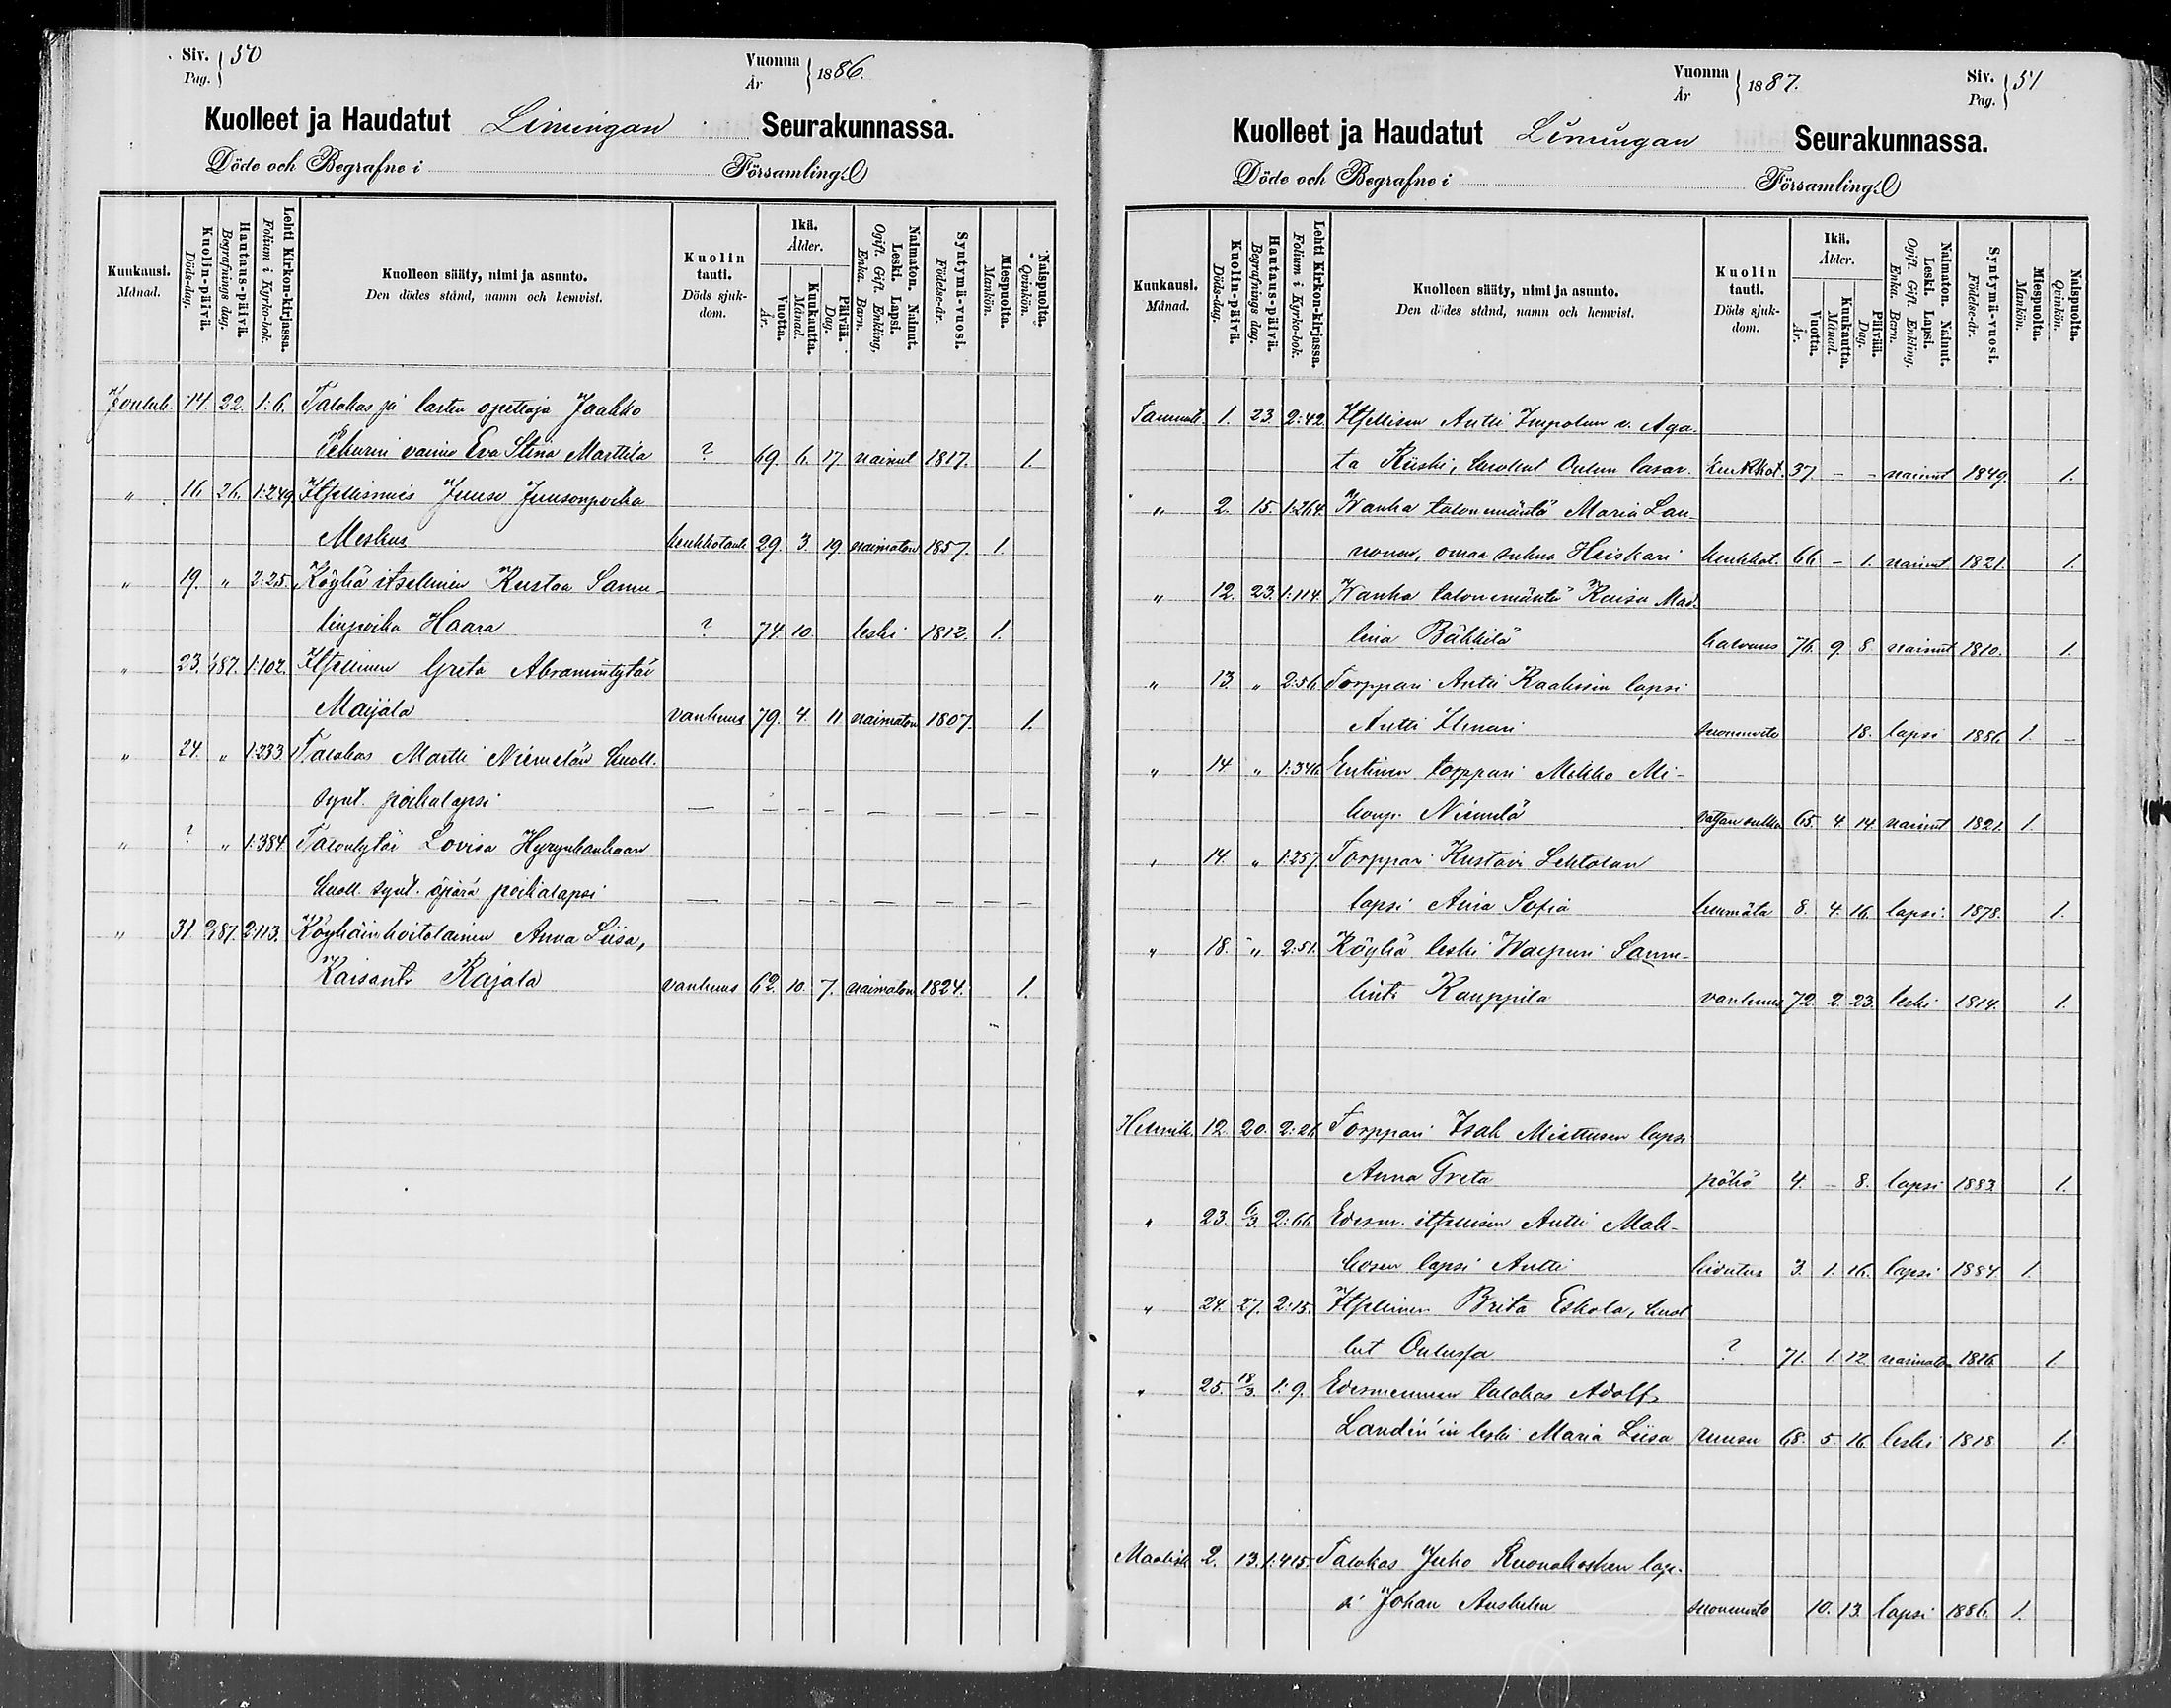 Siv. Pag. 50
Vuonna År 1886.
Kuolleet ja Haudatut Limingan Seurakunnassa.
Döde och Begrafne i Församling
Kuukausi. Månad.
Kuolin-päivä. Döds-dag.
Hautaus-päivä. Begrafnings dag.
Lehti Kirkon-kirjassa. Folium i Kyrko-bok.
Kuolleen sääty, nimi ja asunto. Den dödes stånd, namn och hemvist.
Kuolin tauti. Döds sjuk-dom.
Ikä. Ålder.
Vuotta. År.
Kuukautta. Månad.
Päivää. Dag.
Naimaton. Nainut. Leski. Lapsi. Ogift. Gift. Enkling, Enka. Barn.
Syntymä-vuosi. Födelse-år.
Miespuolta. Mankön.
Naispuolta. Qvinkön.
Jouluk. 14. 22. 1:6. Talokas ja lasten opettaja Jaakko
Pehurin vaimo Eva Stina Marttila ? 69. 6. 17. nainut 1817. 1.
" 16. 26. 1:249 Itsellismies Juuso Juusonpoika
Meskus keuhkotauti 29. 3. 19. naimaton 1857. 1.
" 19. " 2:25. Köyhä itsellinen Kustaa Samu-
linpoika Haara ? 74. 10. leski 1812. 1.
" 23. 1/1 87. 1:102. Itsellinen Greta Abramintytär
Maijala vanhuus 79. 4. 11 naimaton 1807. 1.
" 24. " 1:233. Talokas Martti Niemelän kuoll.
synt. poikalapsi — — — — — — — —
" ? " 1:384. Talontytär Lovisa Hyrynkankaan
kuoll. synt. äpärä poikalapsi — — — — — — — —
" 31. 2/1 87. 2:113. Köyhäinhoitolainen Anna Liisa,
Kaisant. Rajala vanhuus 62. 10. 7. naimaton 1824. 1.
Vuonna År 1887.
Siv. Pag. 51
Kuolleet ja Haudatut Limingan Seurakunnassa.
Döde och Begrafne i Församling
Kuukausi. Månad.
Kuolin-päivä. Döds-dag.
Hautaus-päivä. Begrafnings dag.
Lehti Kirkon-kirjassa. Folium i Kyrko-bok.
Kuolleen sääty, nimi ja asunto. Den dödes stånd, namn och hemvist.
Kuolin tauti. Döds sjuk-dom.
Ikä. Ålder.
Vuotta. År.
Kuukautta. Månad.
Päivää. Dag.
Naimaton. Nainut. Leski. Lapsi. Ogift. Gift. Enkling, Enka. Barn.
Syntymä-vuosi. Födelse-år.
Miespuolta. Mankön.
Naispuolta. Qvinkön.
Tammik. 1. 23. 2:42. Itsellisen Antti Impolan v. Aga-
ta Kiiski, kuollut Oulun lasar. keuhkot. 37. – – nainut 1849. 1.
" 2. 15. 1:264. Wanha talonemäntä Maria Lau-
nonen, omaa sukua Heiskari keuhkot. 66. – 1. nainut 1821. 1.
" 12. 23. 1:114. Wanha talonemäntä Kaisa Mad-
lena Bäkkilä halvaus 76. 9. 8. nainut 1810. 1.
" 13. " 2:56. Torppari Antti Kaaksin lapsi
Antti Ilmari suonenveto 18. lapsi 1886. 1. –
" 14 " 1:346. Entinen torppari Mikko Mi-
konp. Niemelä 65. 4. 14. nainut 1821. 1.
" 14. " 1:257. Torppari Kustavi Lehtolan
lapsi Aina Sofia kuumäta 8. 4. 16. lapsi 1878. 1.
" 18. " 2:51. Köyhä leski Walpuri Samu-
lint. Kauppila vanhuus 72. 2. 23. leski 1814. 1.
Helmik. 12. 20. 2:26. Torppari Isak Miettusen lapsi
Anna Greta pöhö 4. – 8. lapsi 1883. 1.
" 23. 6/3. 2:66. Edesm. itsellisen Antti Mali-
kosen lapsi Antti kivutus 3. 1. 16. lapsi 1884. 1.
" 24. 27. 2:15. Itsellinen Brita Eskola, kuol
lut Oulussa ? 71. 1. 12. naimaton 1816. 1.
" 25. 18/3. 1:9. Edesmennen talokas Adolf
Landin'in leski Maria Liisa ruusu 68. 5. 16. leski 1818. 1.
Maalisk. 2. 13. 1:415. Talokas Juho Ruonakosken lap-
si Johan Anshelm suonenveto 10. 13. lapsi 1886. 1.